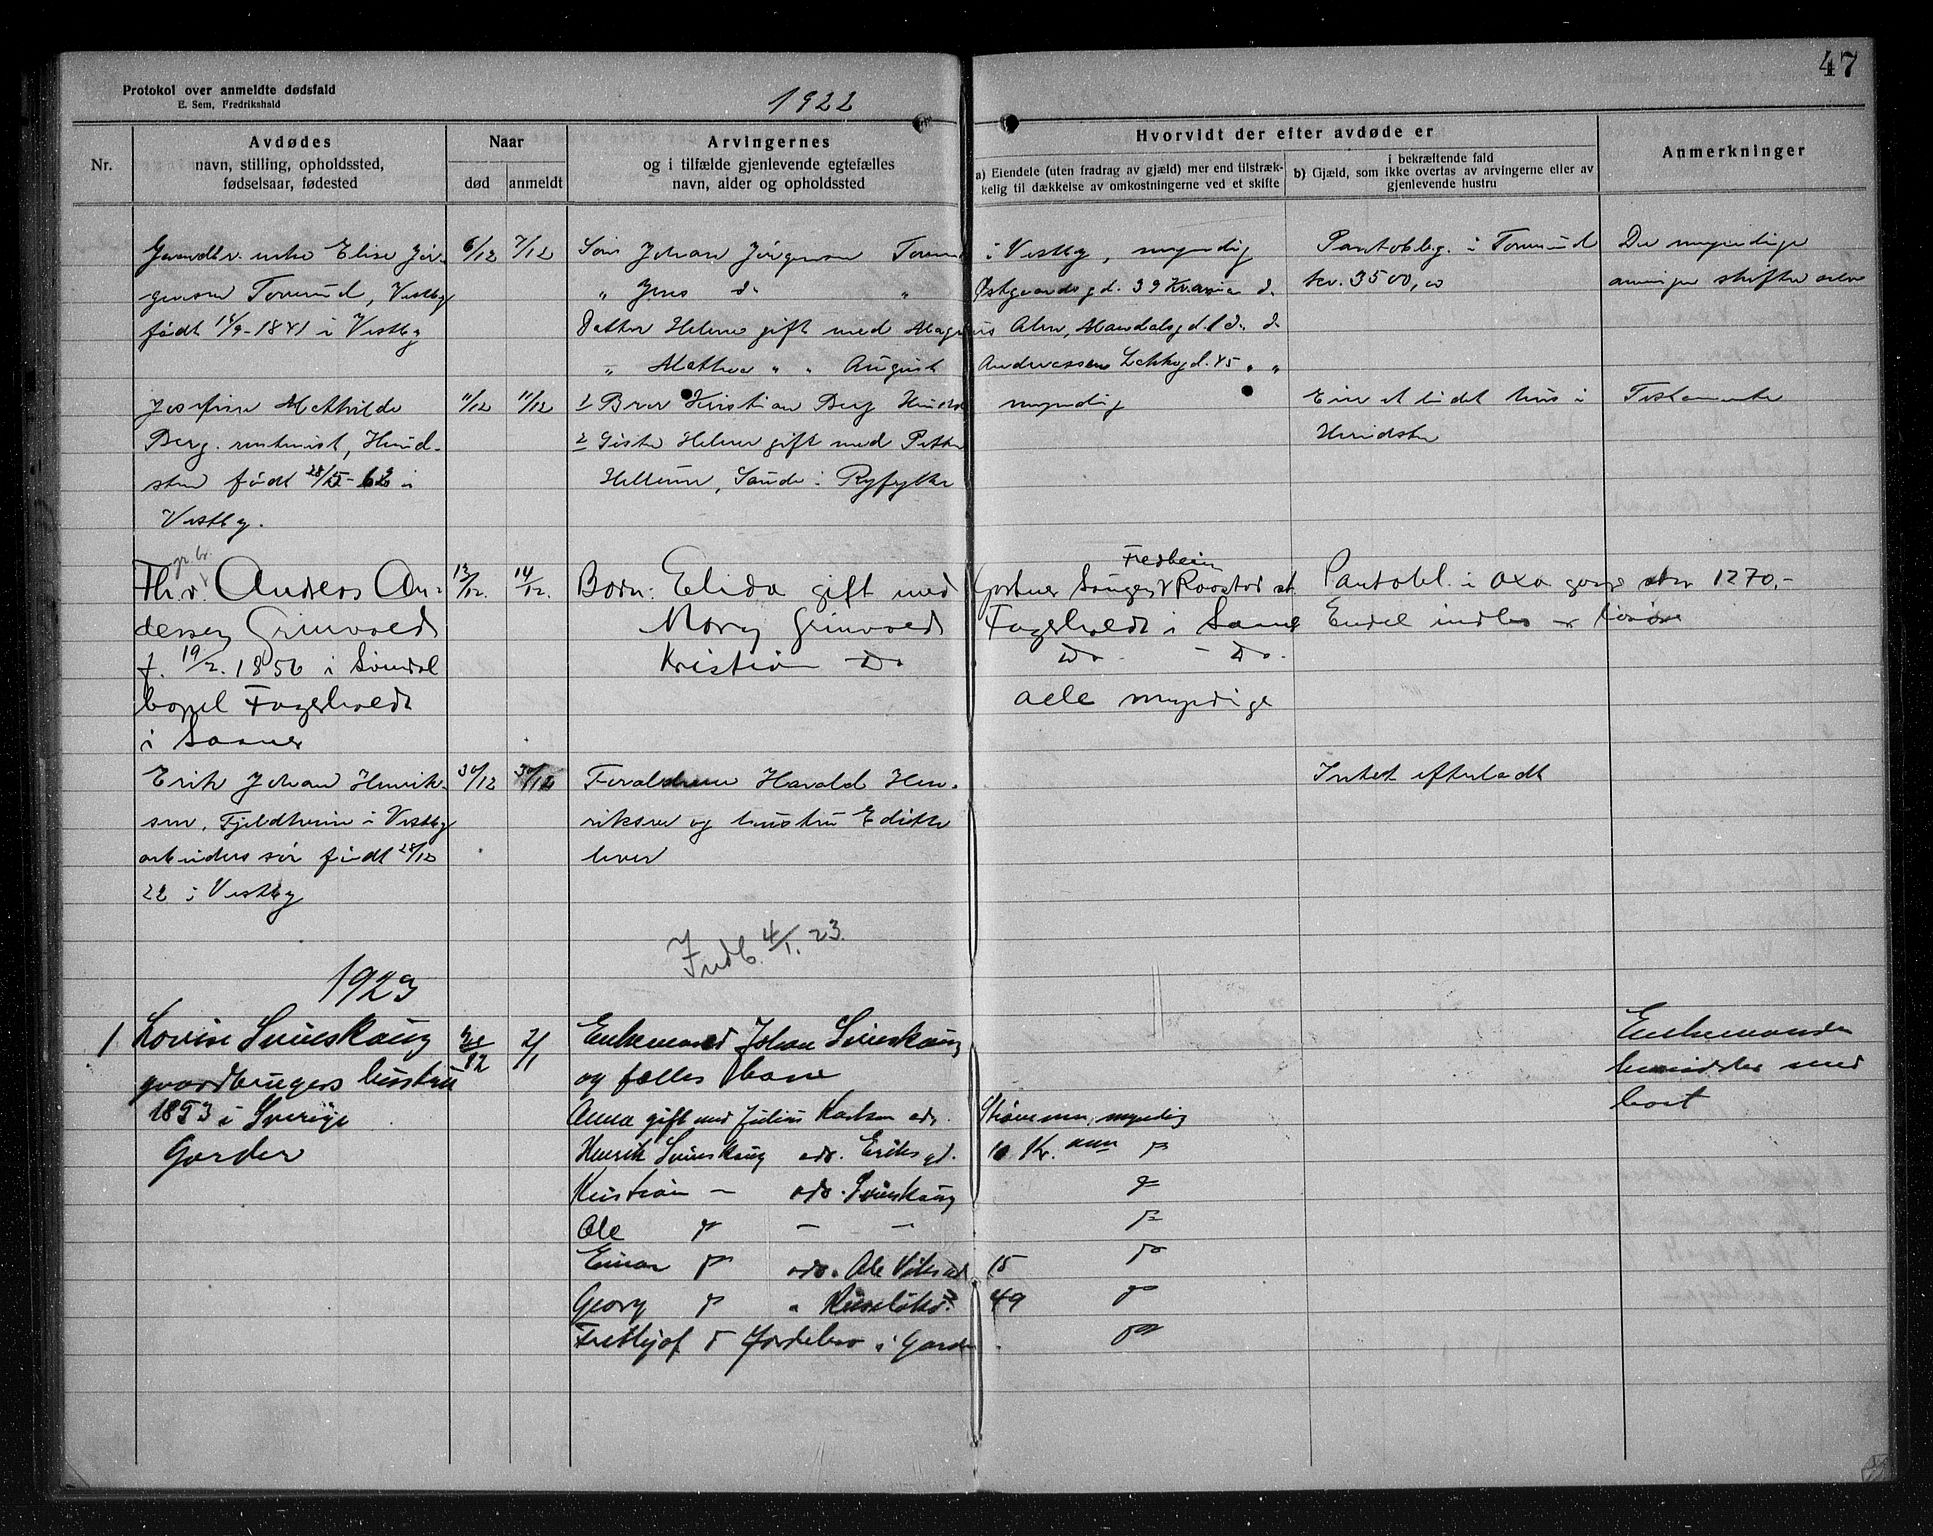 47
Protokol over anmeldte dødsfald
E. Sem, Fredrikshald
1922
Nr.
Avdødes
navn, stilling, opholdssted,
fødselsaar, fødested
Naar
død
anmeldt
Arvingernes
og i tilfælde gjenlevende egtefælles
navn, alder og opholdssted
Hvorvidt der efter avdøde er
a) Eiendele (uten fradrag av gjæld) mer end tilstræk-
kelig til dækkelse av omkostningerne ved et skifte
i bekræftende fald
b) Gjæld, som ikke overtas av arvingerne eller av
gjenlevende hustru
Anmerkninger
Gaardbr. enke Elise Jør-
gensen Tomrud, Vestby
født 14/9-1841 i Vestby
6/12
7/12
Søn Johan Jørgensen i Vestby, myndig
" Jens d. " Østgaardsgd. 39 Kr.ania d.
Datter Helene gift med Magnus Olsen, Mandalsgd. 1 d. d.
" Mathea " " August Andreassen 45 " "
Pantoblig. i Tomrud
kr. 3500,00
De myndige
arvinger skifter selv
Josefine Mathilde
Berg, Hvid-
sten født 28/5-62 i
Vestby.
11/12
11/12
1 Bror Kristian Berg Hvidsten myndig
2 Søster Helene gift med Petter
Helleum, Sande i Ryfylke
Eier et lidet hus i
Hvidsten
Testamente
gr. br.
Anders An-
dersen Grinvold
f. 19/2. 1856 i
bopæl Fagerholdt
i Saaner
13/12.
14/12.
Børn: Elida gift med
Fredheim
Fagerholdt i Saaner
Grinvold
Kristian Do Do. - Do.
alle myndige
Pantobl. i kr 1270,-
Endel indbo er løsøre
Erik Johan Henrik-
sen, Fjeldheim i Vestby
arbeiders søn født 28/12
22 i Vestby
30/12
30/12
Forældrene Harald Hen-
riksen og hustru Edith
lever
Intet efterladt
Indb. 4/1. 23.
1923
1
Lovise Svinskaug
gaardbrugers hustru
1853 i Sverige
Garder
12
2/1
Enkemand Johan Svinskaug
og fælles barn
Anna gift med Julius Karlsen adr. Strømmen, myndig
Henrik Svinskaug adr. Eriks gd. 10 Kr. ania do
Kristian - adr. Svinskaug do
Ole do - - do
Einar do adr. Ole 15 do
Georg do " 49 do
Frithjof do i Garder. do
Enkemanden
hensidder med
boet